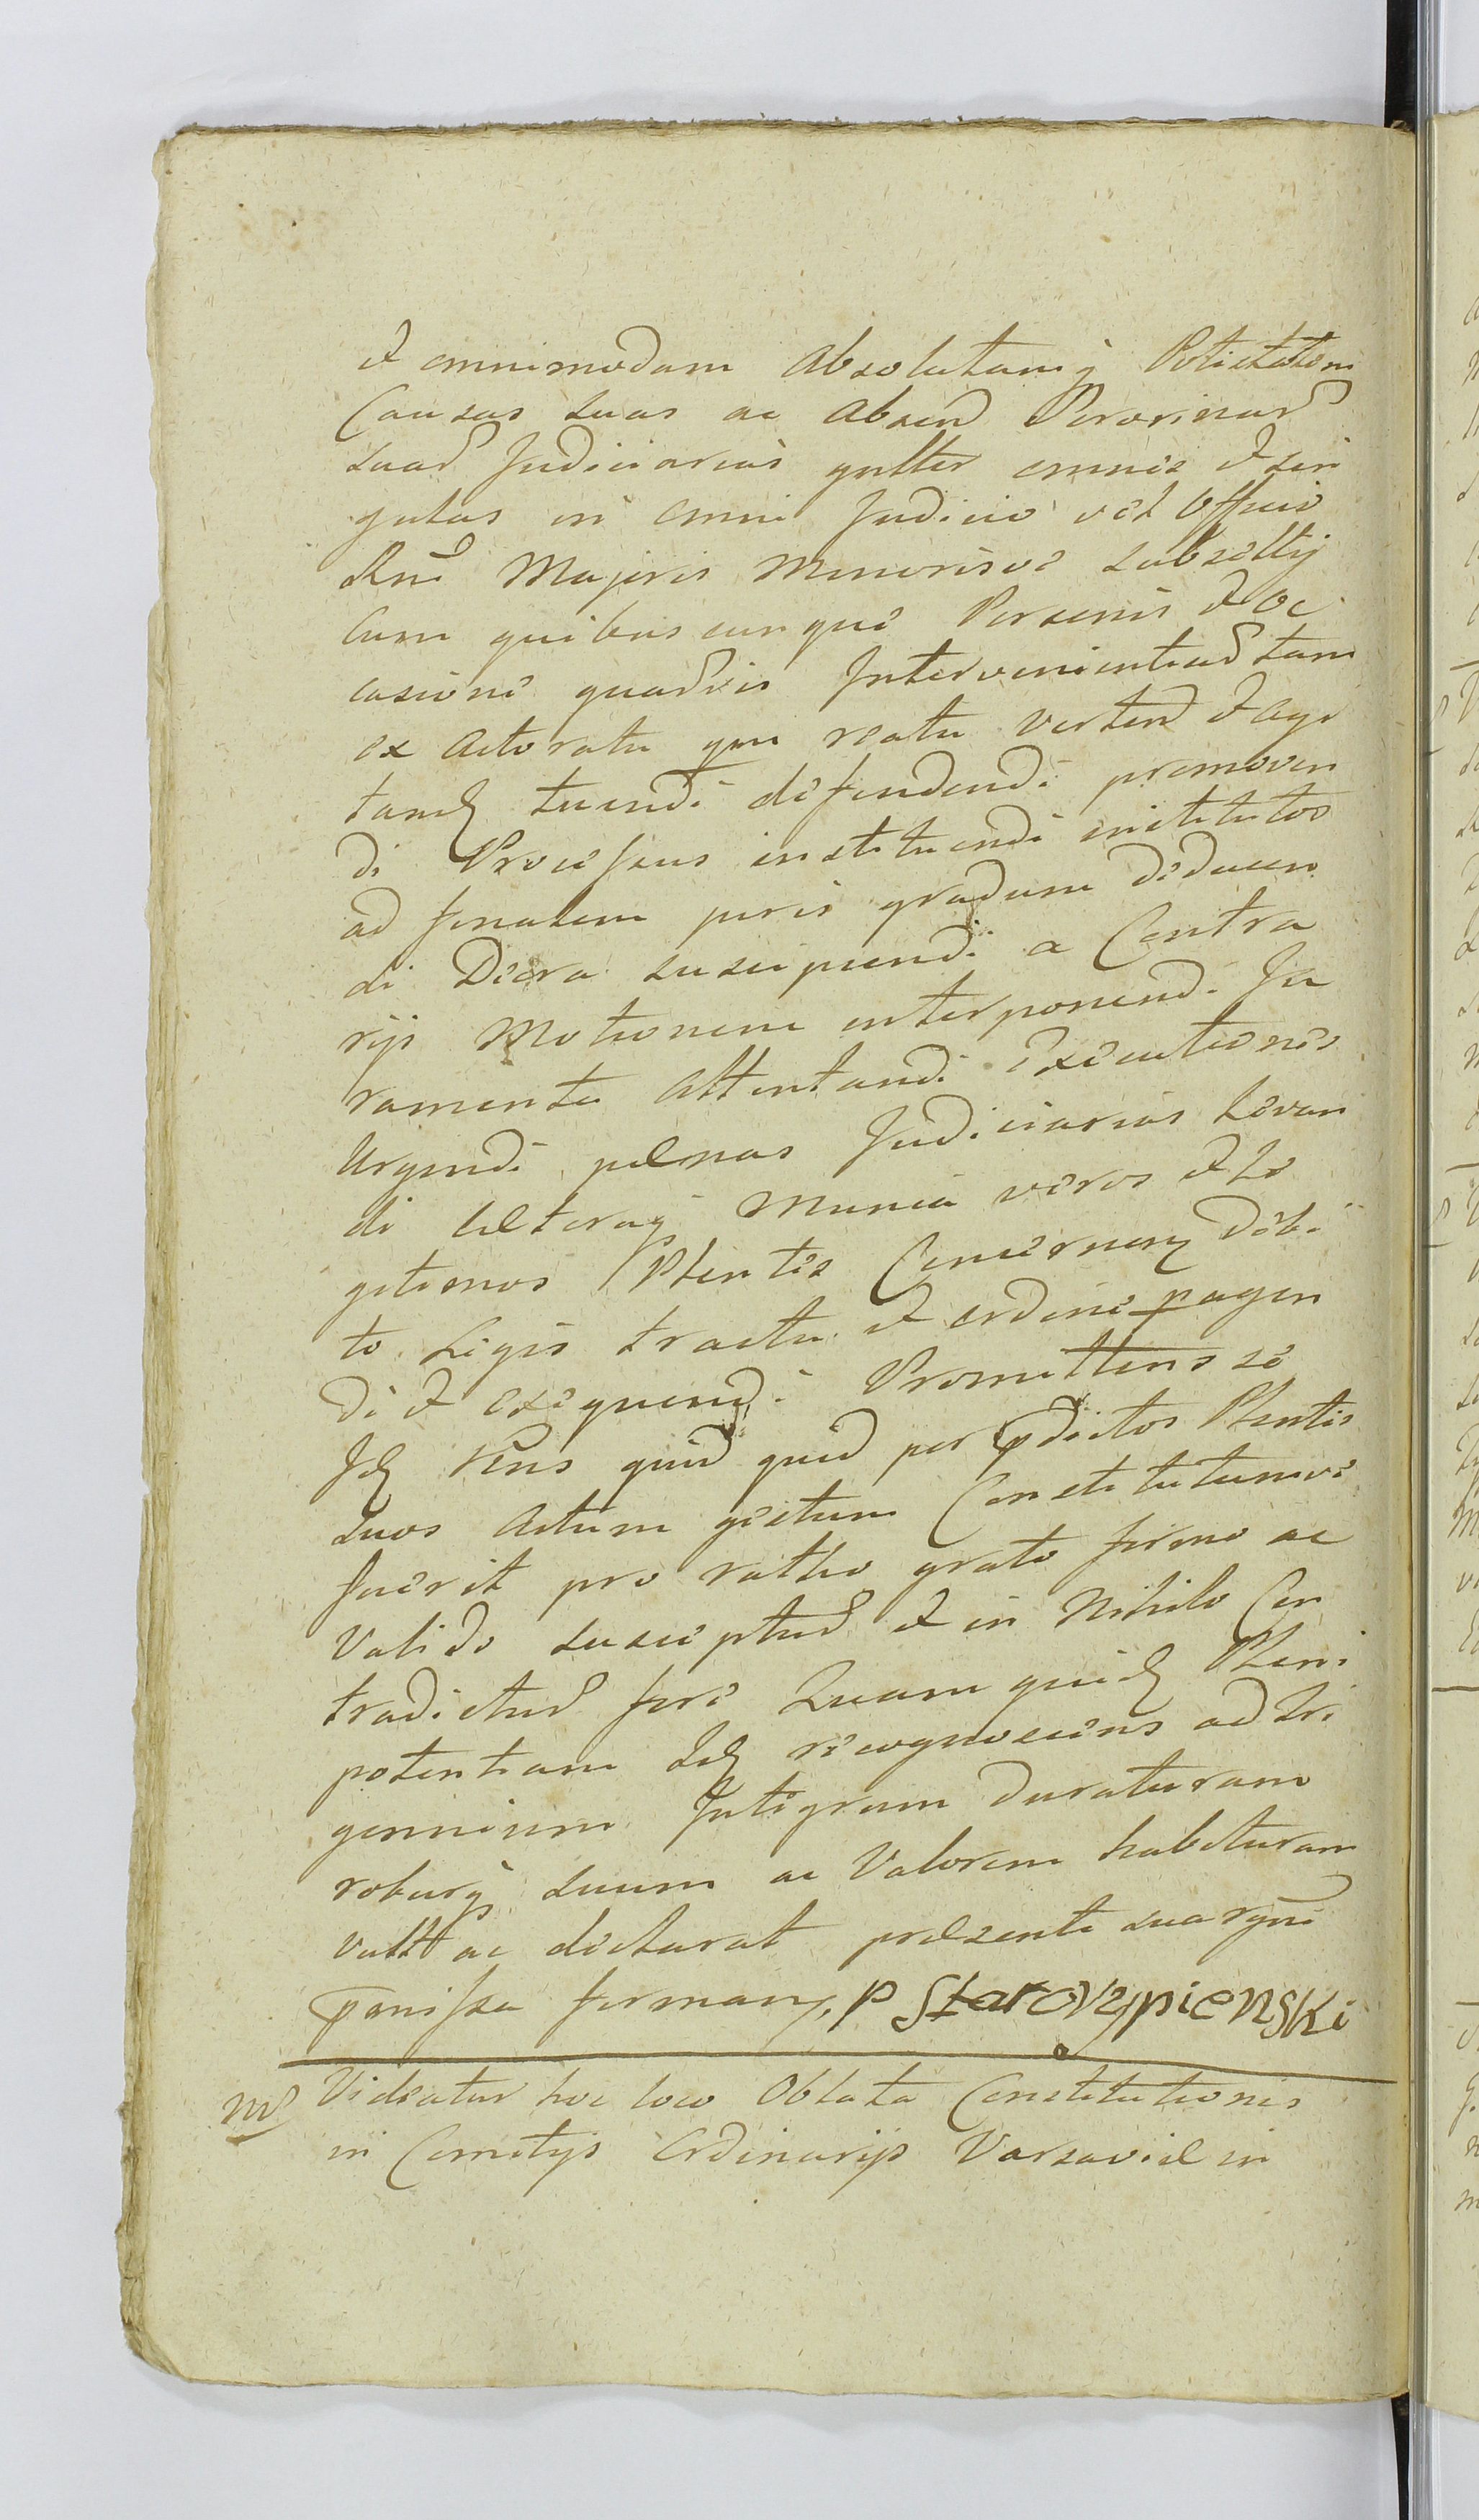 et omnimodam Absolutamq Potestatem
Causas suas ac Absend
suar Judiciarias gnlter omnes et sin
gulas in omni Judicio vel Officio
Rni Majoris Minorisve subsellij
cum quibuscunque Personis et Oc
casione quarvis Intervenientiar tam
ex Actoratu qm reatu verten et agi
tand tuendi defendendi promoven
di Processus instituendi institutos
ad finalem juris gradum deducen
di Decra suscipiendi a Contra
rijs Motionem interponendi Ju
ramenta Attentandi executiones
Urgendi pænas Judiciarias Levan
di cæteraq Munia veros et Le
gitimos Plentes Concernen debi
to Legis tractu et ordine pagen
di et exequendi Promittens se
Id Rns quid quid per pdictos Plentes
suos Actum gestum Constitutumve
fuerit pro ratho grato firmo ac
Valido suscepturd et in Nihilo Con
tradicturd fore Quam quid Pleni
potentiam Id recognoscens ad tri
gennium Integrum duraturam
roburq suum ac Valorem habituram
vult ac declarat præsenti sua rgni
pmissa firman. P Starorypienski
NB Videatur hoc loco Oblata Constitutionis
in Comitijs Ordinarijs Varsaviæ in